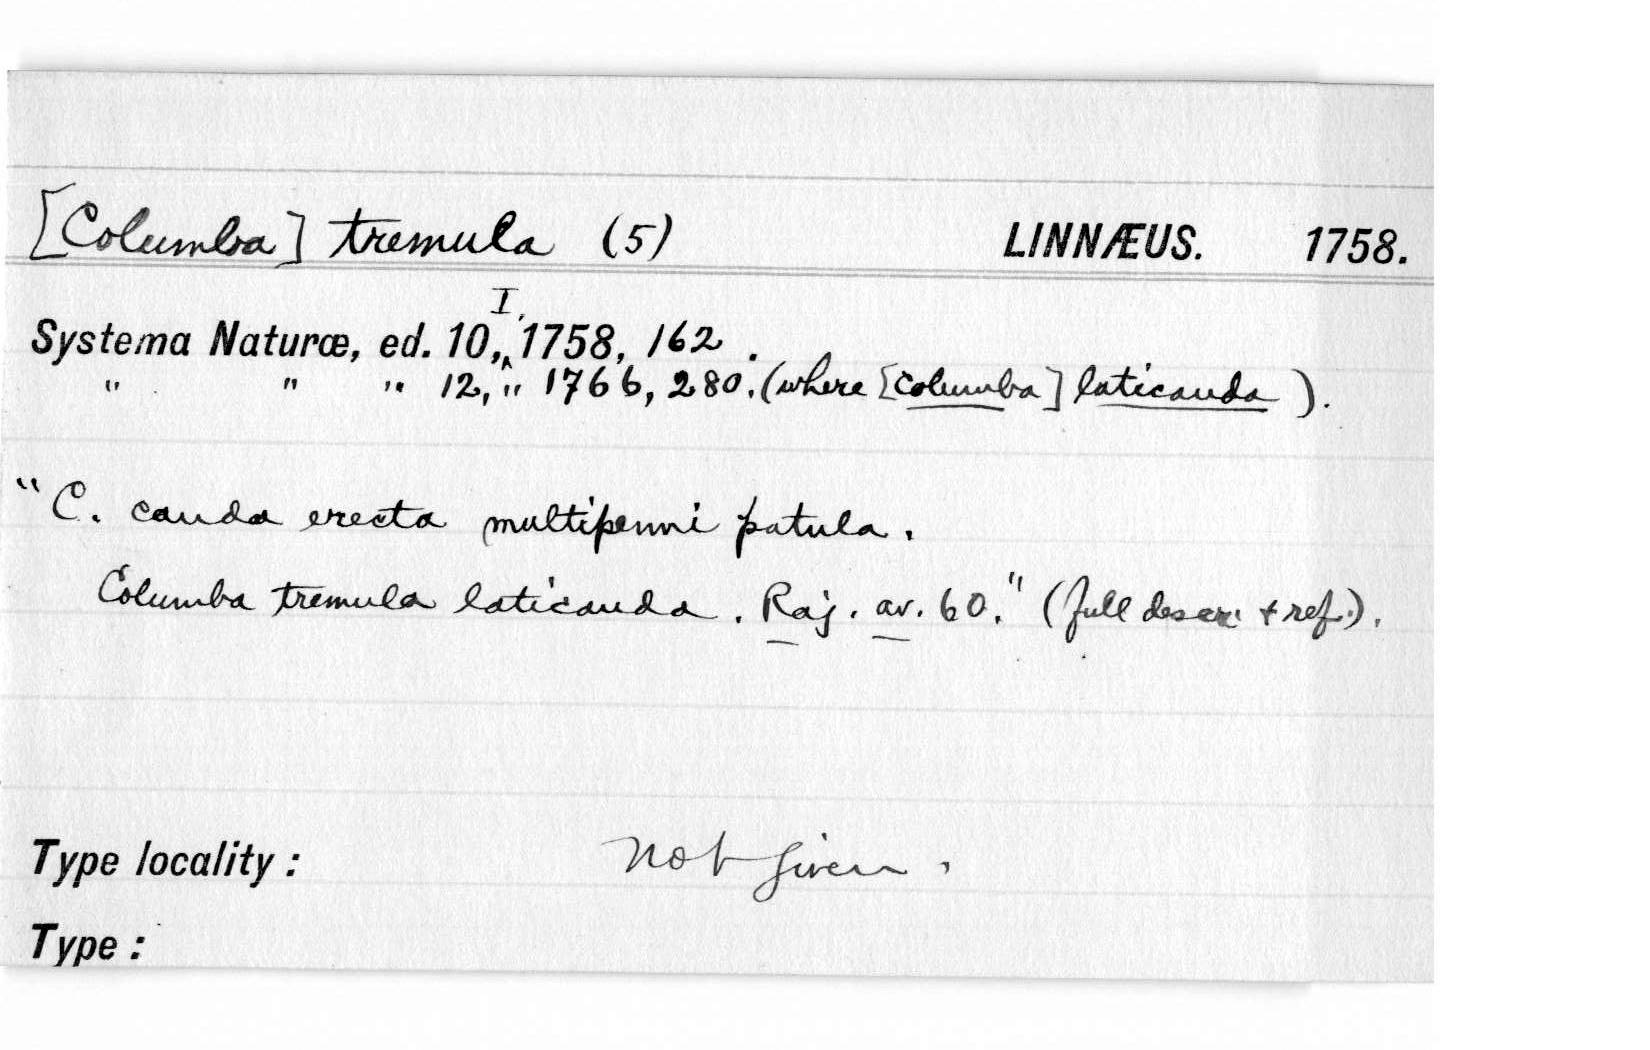 [Columba] tremula (5) LINNÆUS. 1758.
Systema Naturæ, ed. 10, I, 1758, 162.
" " " 12, " 1766, 280. (where [Columba] laticauda).
"C. cauda erecta multipenni patula.
Columba tremula laticauda. Raj. av. 60." (full descr. + ref.).
Type locality: Not given.
Type: